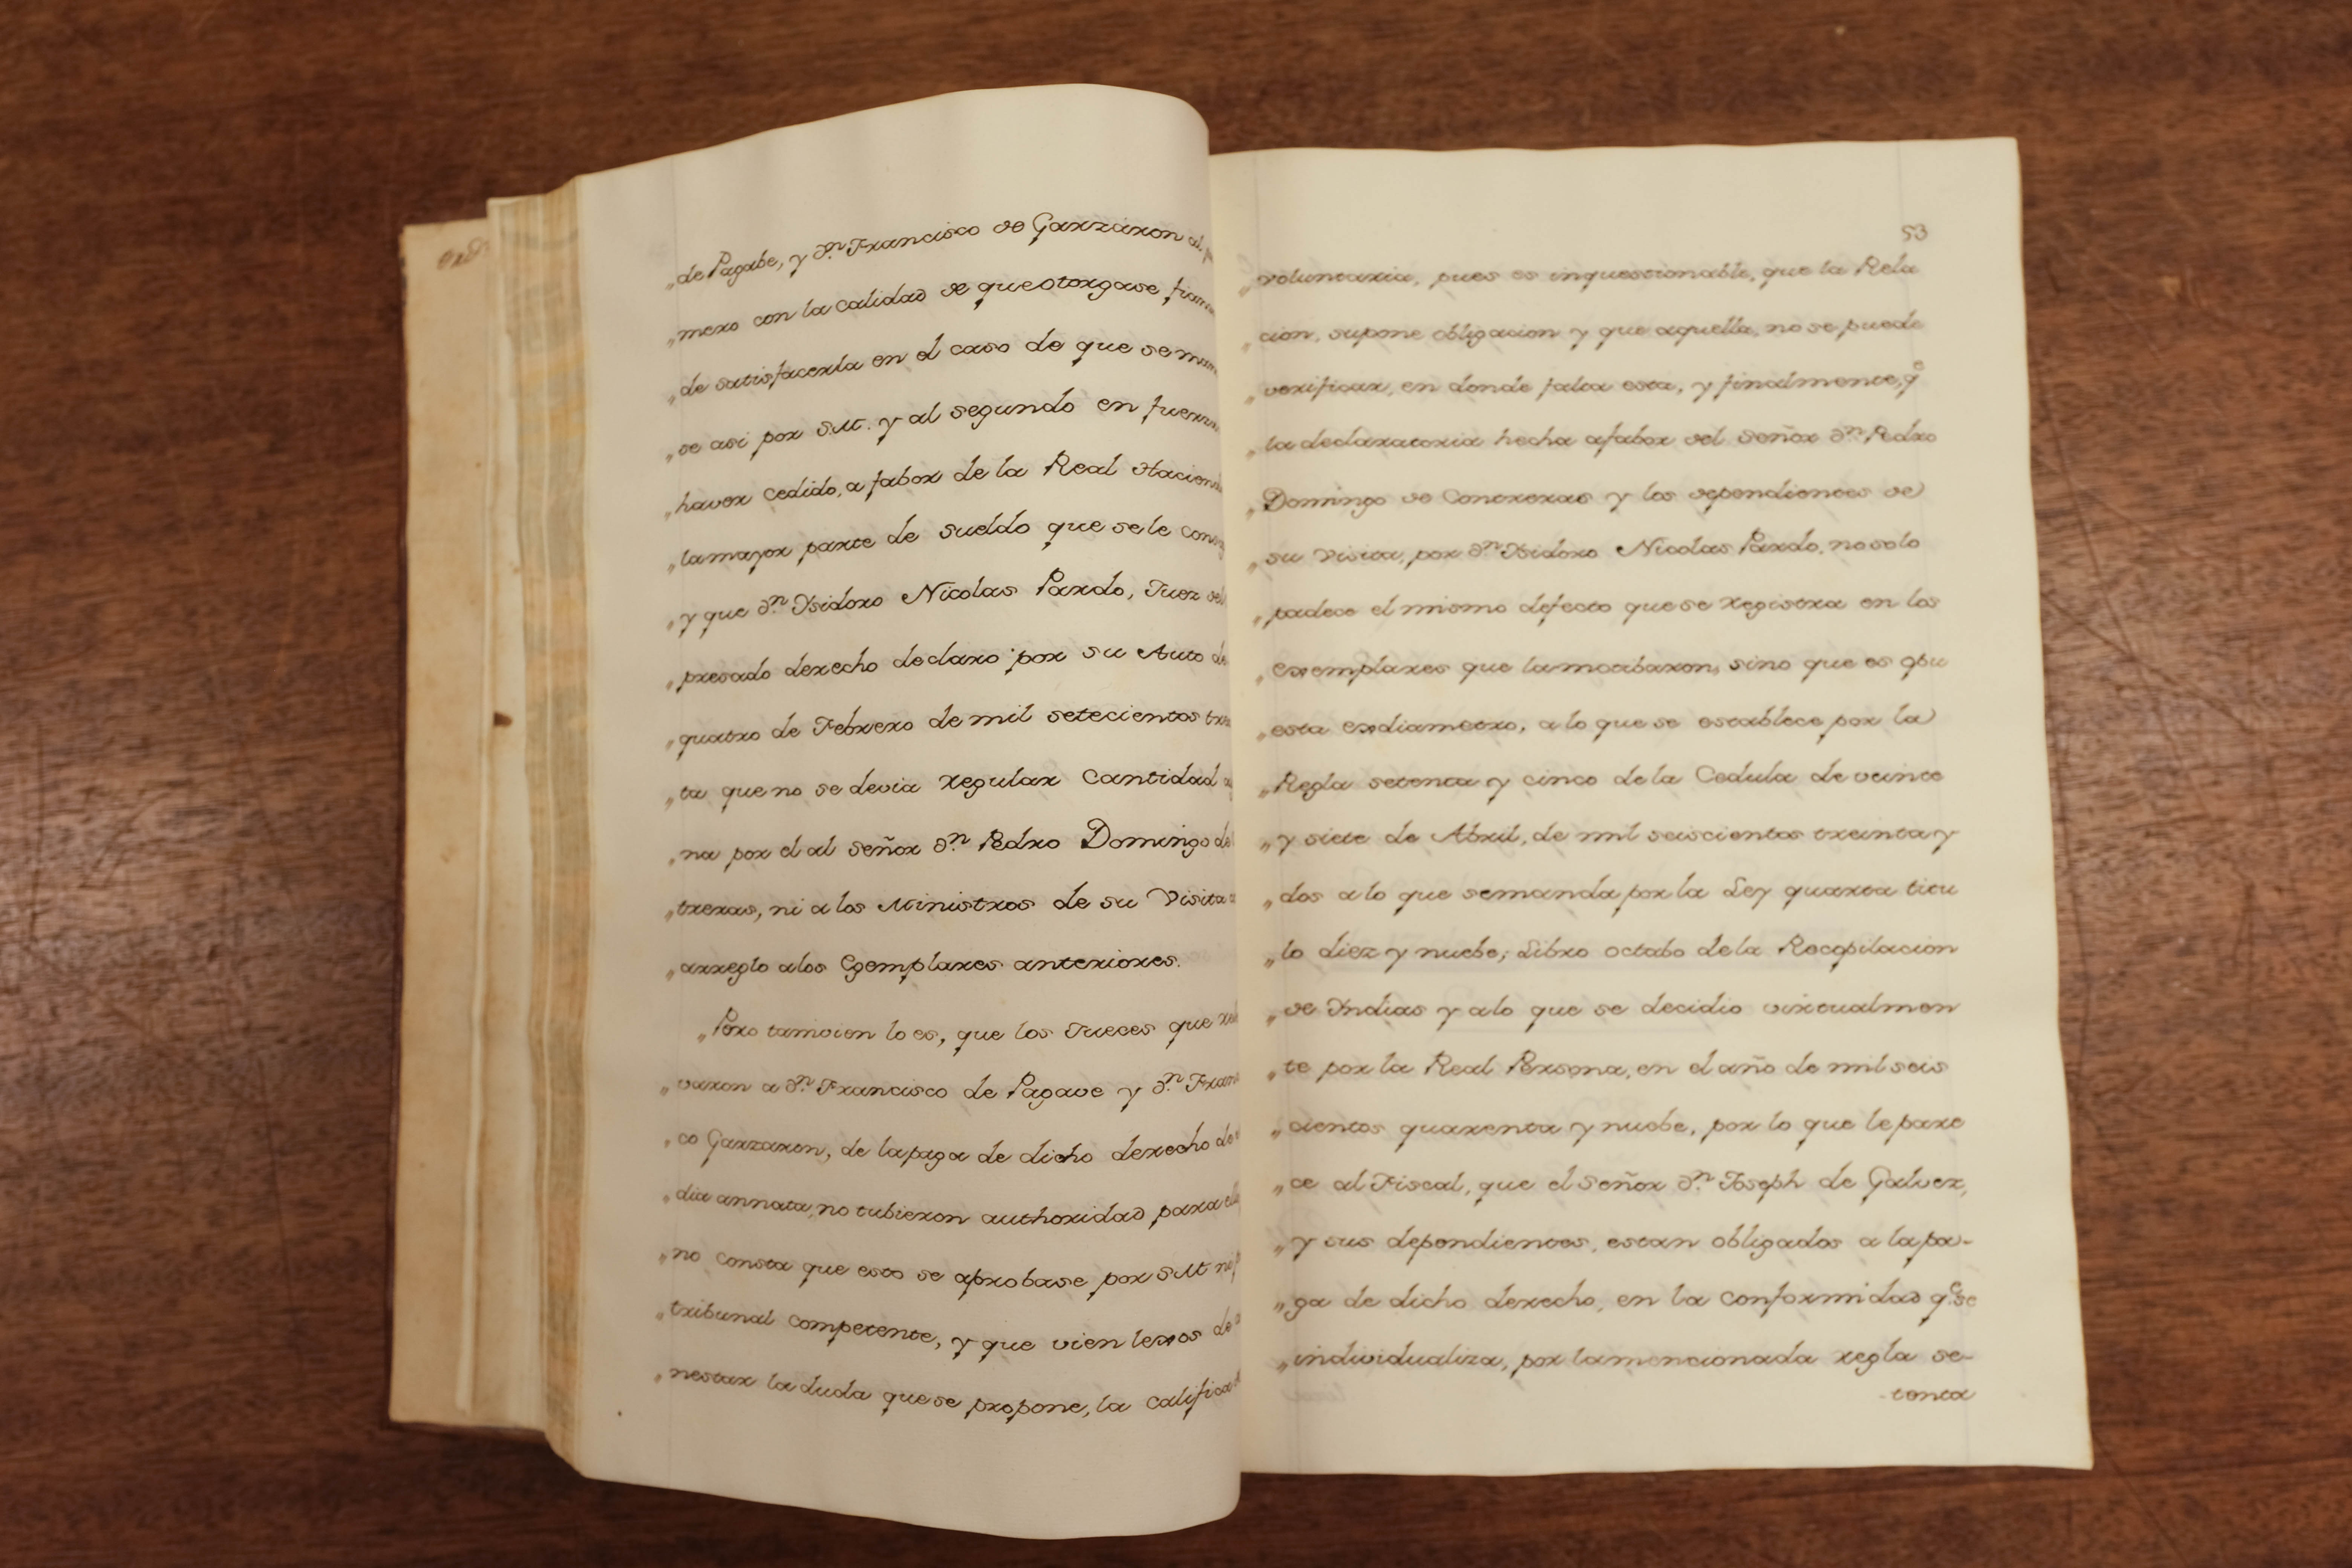 „de Pagabe, y Dn. Francisco de Garzaron al
„mero con la calidad de que otorgase
„de satisfacerla en el caso de que se
„se asi por S.M. y al segundo en fuerza
„haver cedido, a fabor de la Real Hacienda
„la mayor parte de sueldo que se le
„y que Dn. Ysidoro Nicolas Pardo, Juez del
„presado derecho declaro por su Auto de
„quatro de Febrero de mil setecientos
„ta que no se devia regular Cantidad
„na por el al Señor Dn. Pedro Domingo de
„treras, ni a los Ministros de su Visita
„arreglo a los Egemplares anteriores.
„Pero tamvien lo es, que los Jueces que
„varon a Dn. Francisco de Pagave y Dn.
„co Garzaron, de la paga de dicho derecho de
„dia annata, no tubieron authoridad para
„no consta que esto se aprobase por S.M. ni
„tribunal competente, y que vien lexos de
„nestar la duda que se propone, la
53
„voluntaria, pues es inquestionable, que la Rela
„cion, supone obligacion y que aquella, no se puede
„verificar, en donde falta esta, y finalmente, qe
„la declaratoria hecha a fabor del Señor Dn. Pedro
„Domingo de Contreras y los dependientes de
„su Visita, por Dn. Ysidoro Nicolas Pardo, no solo
„padece el mismo defecto que se registra en los
„exemplares que la motibaron, sino que es opu
„esta exdiametro, a lo que se establece por la
„Regla setenta y cinco de la Cedula de veinte
„y siete de Abril, de mil seiscientos treinta y
„dos a lo que se manda por la Ley quarta titu
„lo diez y nuebe, Libro octabo de la Recopilacion
„de Yndias y a lo que se decidio virtualmen
„te por la Real Persona, en el año de mil seis
„cientos quarenta y nuebe, por lo que le pare
„ce al Fiscal, que el Señor Dn. Joseph de Galvez,
„y sus dependientes, estan obligados a la pa-
„ga de dicho derecho, en la conformidad qe. se
„individualiza, por la mencionada regla se-
-tenta